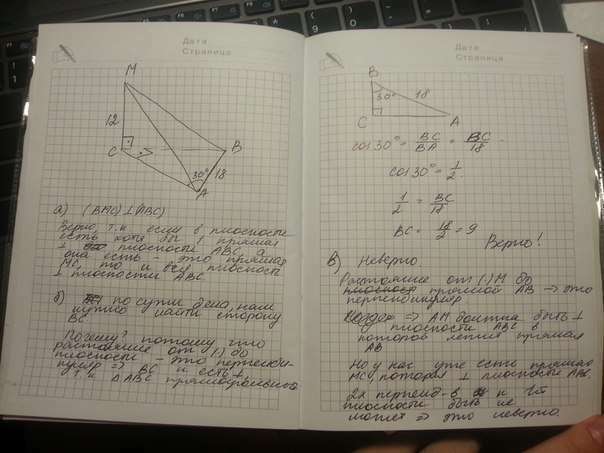 Дата
Страница
M
12
C
B
30°
18
A
а) (BMC)⊥(ABC)
Верно, т.к если в плоскости
есть хотя бы 1 прямая
⊥ плоскости ABC, а
она есть - это прямая
MC, то и вся плоскость
⊥ плоскости ABC.
б) по сути дела, нам
нужно найти сторону
BC
Почему? потому что
расстояние от (.) до
плоскости - это перпенди-
куляр => BC и есть ⊥
т.к △ABC прямоугольный
Дата
Страница
B
30°
18
C
A
cos 30° = BC/BA = BC/18
cos 30° = 1/2
1/2 = BC/18
BC = 18/2 = 9
Верно!
в) Неверно
Расстояние от (.) M до
прямой AB => это
перпендикуляр
=> AM должна быть ⊥
плоскости ABC в
которой лежит прямая
AB
Но у нас уже есть прямая
MC, которая ⊥ плоскости ABC,
2х перпенд-в к 1ой
плоскости быть не
может => это неверно